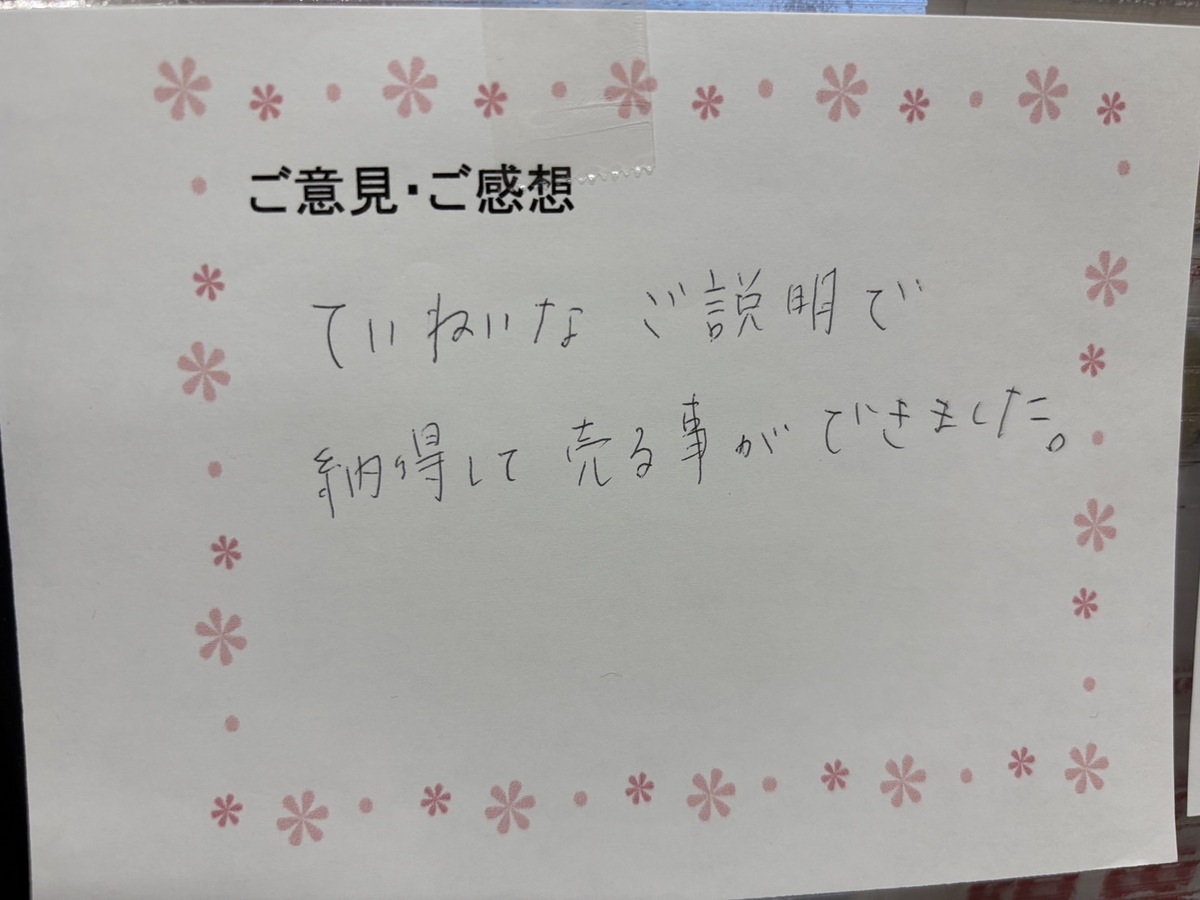 ご意見・ご感想
ていねいな ご説明で
納得して 売る事が できました。